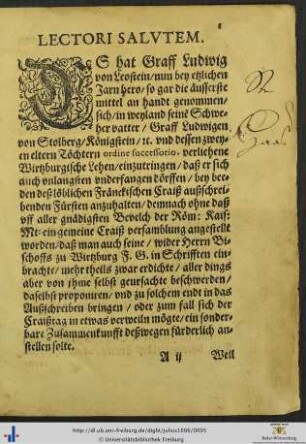 LECTORI SALVTEM.
ES hat Graff Ludwig
von Leostein/nun bey etzlichen
Jarn hero/ so gar die äusserste
mittel an handt genommen/
sich/ in weyland seine Schwe-
her vatter / Graff Ludwigen
von Stolberg/ Königstein / ꝛc. vnd dessen zwey-
en eltern Töchtern ordine successorio, verliehene
Wirtzburgische Lehen/ einzutringen/ daß er sich
auch vnlangsten vnderfangen dörffen / bey bee-
den deß löblichen Fränckischen Craiß außschrei-
benden Fürsten anzuhalten/ demnach ohne daß
vff aller gnädigsten Bevelch der Röm: Kais:
Mt: ein gemeine Craiß versamblung angestellt
worden/ daß man auch seine / wider Herrn Bi-
schoffs zu Wirtzburg F. G. in Schrifften ein-
brachte/ mehr theils zwar erdichte/ aller dings
aber von ihme selbst geursachte beschwerden/
daselbst proponiren/ vnd zu solchem endt in das
Außschreiben bringen / oder zum fall sich der
Craißtag in etwas verweiln mögte/ ein sonder-
bare Zusammenkunfft deßwegen fürderlich an-
stellen solte.
A ij Weil
http://dl.ub.uni-freiburg.de/diglit/julius1606/0005
© Universitätsbibliothek Freiburg
Baden-Württemberg